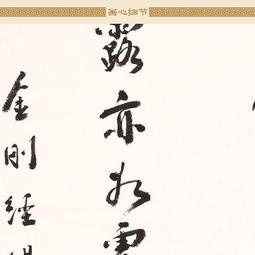 画心细节
露亦如電
金剛經